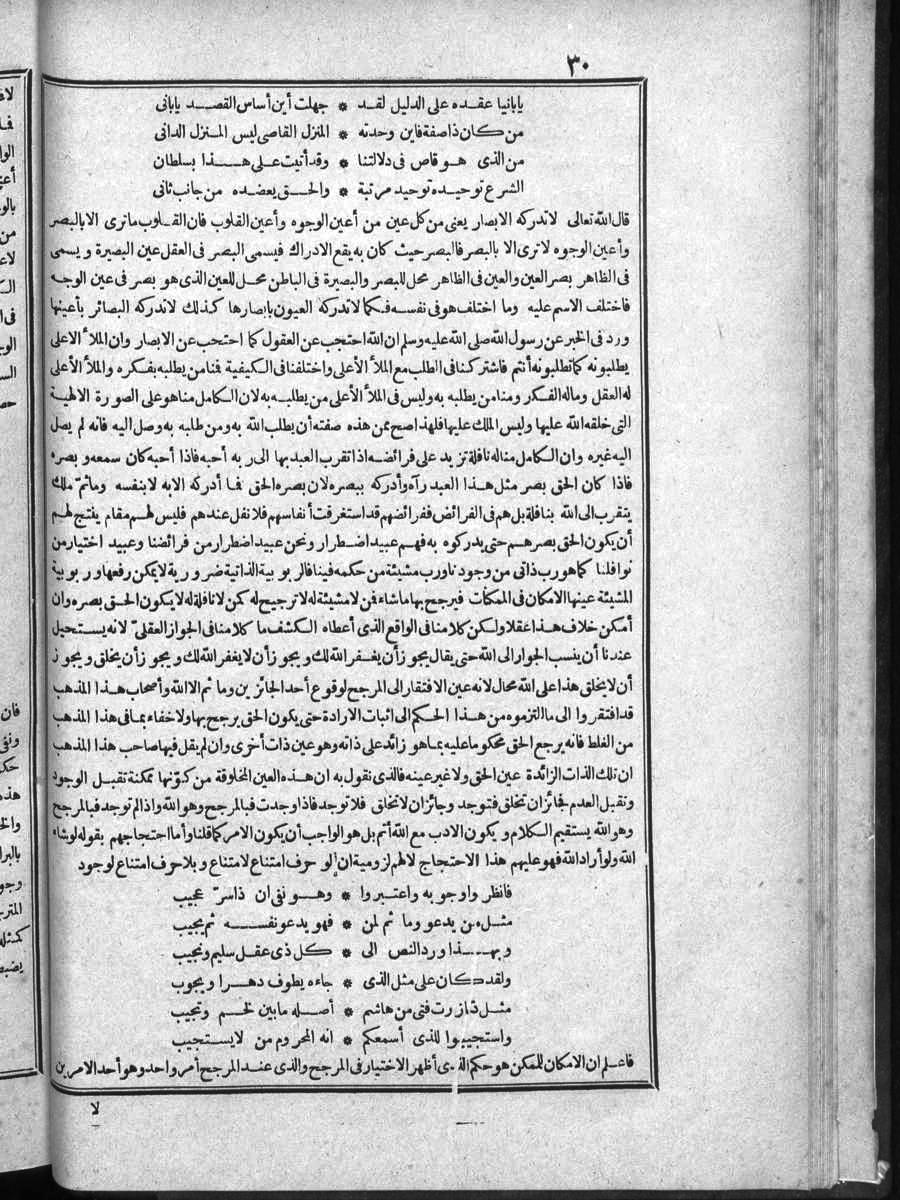 ٣٠
يابانيا عقده على الدليل لقد * جهلت أين أساس القصد يابانى
من كان ذا صفة فاين وحدته * المنزل القاصى ليس المنزل الدانى
من الذى هو قاص فى دلالتنا * وقد أتيت على هذا بسلطان
الشرع توحيده توحيد مرتبة * والحق يعضده من جانب ثانى
قال الله تعالى لاتدركه الابصار يعنى من كل عين من أعين الوجوه وأعين القلوب فان القلوب ماترى الا بالبصر
وأعين الوجوه لاترى الا بالبصر فالبصر حيث كان به يقع الادراك فيسمى البصر فى العقل عين البصيرة ويسمى
فى الظاهر بصر العين والعين فى الظاهر محل للبصر والبصيرة فى الباطن محل للعين الذى هو بصر فى عين الوجه
فاختلف الاسم عليه وما اختلف هو فى نفسه فكما لاتدركه العيون بابصارها كذلك لاتدركه البصائر بأعينها
ورد فى الخبر عن رسول الله صلى الله عليه وسلم ان الله احتجب عن العقول كما احتجب عن الابصار وان الملأ الاعلى
يطلبونه كما تطلبونه أنتم فاشتركنا فى الطلب مع الملأ الأعلى واختلفنا فى الكيفية فمنا من يطلبه بفكره والملأ الأعلى
له العقل وماله الفكر ومنا من يطلبه به وليس فى الملأ الأعلى من يطلبه به لان الكامل منا هو على الصورة الالهية
التى خلقه الله عليها وليس الملك عليها فلهذا صح ممن هذه صفته أن يطلب الله به ومن طلبه به وصل اليه فانه لم يصل
اليه غيره وان الكامل منا له نافلة تزيد على فرائضه اذا تقرب العبد بها الى ربه أحبه فاذا أحبه كان سمعه وبصره
فاذا كان الحق بصر مثل هذا العبد رآه وأدركه ببصره لان بصره الحق فما أدركه الا به لا بنفسه وما ثم ملك
يتقرب الى الله بنافلة بل هم فى الفرائض ففرائضهم قد استغرقت أنفاسهم فلا نفل عندهم فليس لهم مقام ينتج لهم
أن يكون الحق بصرهم حتى يدركوه به فهم عبيد اضطرار ونحن عبيد اضطرار من فرائضنا وعبيد اختيار من
نوافلنا كما هو رب ذاتى من وجودنا ورب مشيئة من حكمه فينا فالربوبية الذاتية ضرورية لايمكن رفعها وربوبية
المشيئة عينها الامكان فى الممكنات فيرجح بها ماشاء فمن لا مشيئة له لا ترجيح له كمن لا نافلة له لايكون الحق بصره وان
أمكن خلاف هذا عقلا ولكن كلامنا فى الواقع الذى أعطاه الكشف ما كلامنا فى الجواز العقلى لانه يستحيل
عندنا أن ينسب الجواز الى الله حتى يقال يجوز أن يغفر الله لك ويجوز أن لا يغفر الله لك ويجوز أن يخلق ويجوز
أن لا يخلق هذا على الله محال لانه عين الافتقار الى المرجح لوقوع أحد الجائزين وما ثم الا الله وأصحاب هذا المذهب
قد افتقروا الى ما التزموه من هذا الحكم الى اثبات الارادة حتى يكون الحق يرجح بها ولا خفاء بما فى هذا المذهب
من الغلط فانه يرجع الحق محكوما عليه بما هو زائد على ذاته وهو عين ذات أخرى وان لم يقل فيها صاحب هذا المذهب
ان تلك الذات الزائدة عين الحق ولا غير عينه فالذى نقول به ان هذه العين المخلوقة من كونها ممكنة تقبل الوجود
وتقبل العدم فجائز ان تخلق فتوجد وجائز ان لا تخلق فلا توجد فاذا وجدت فبالمرجح وهو الله واذا لم توجد فبالمرجح
وهو الله يستقيم الكلام ويكون الادب مع الله أتم بل هو الواجب أن يكون الامر كما قلنا وأما احتجاجهم بقوله لو شاء
الله ولو أراد الله فهو عليهم هذا الاحتجاج لا لهم لزومية ان لو حرف امتناع لامتناع وبلا حرف امتناع لوجود
فانظروا وجوبه واعتبروا * وهو نفى ان ذا سر عجيب
مثل من يدعو وما ثم لمن * فهو يدعو نفسه ثم يجيب
وبهذا ورد النص الى * كل ذى عقل سليم ونجيب
ولقد كان على مثل الذى * جاءه يطوف دهرا ويجوب
مثل ذا زرت فتى من هاشم * أصله مابين لخم وتجيب
واستجيبوا للذى أسمعكم * انه المحروم من لايستجيب
فاعلم ان الامكان للممكن هو حكم الذى أظهر الاختيار فى المرجح والذى عند المرجح أمر واحد وهو أحد الامرين
لا